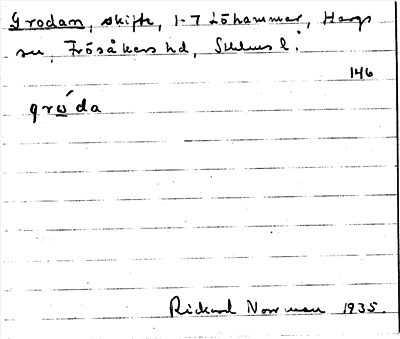 Grodan, skifte, 1-7 Löhammar, Hargs
sn, Frösåkers hd, Sthlms l.
146
grώda
Rickard Norrman 1935.